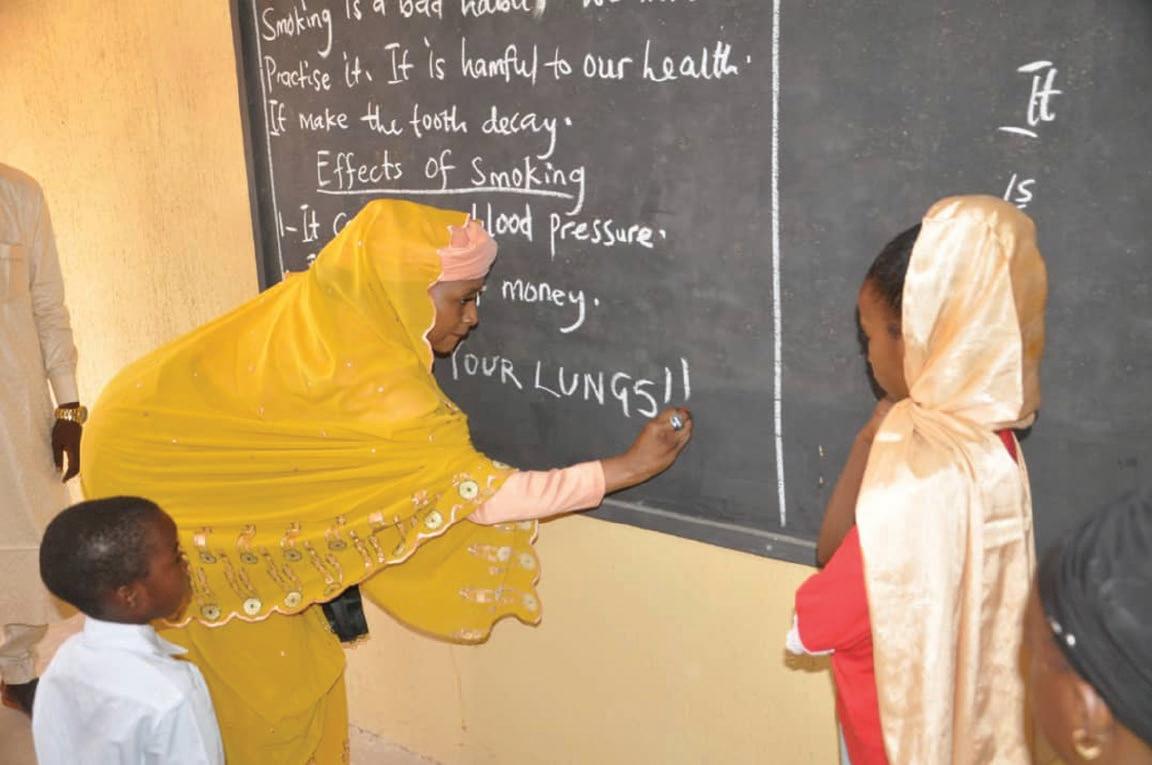 Smoking is a bad habit,
Practise it. It is hamful to our health.
It make the tooth decay.
Effects of Smoking
1- It blood pressure.
money.
YOUR LUNGS!!
It
is